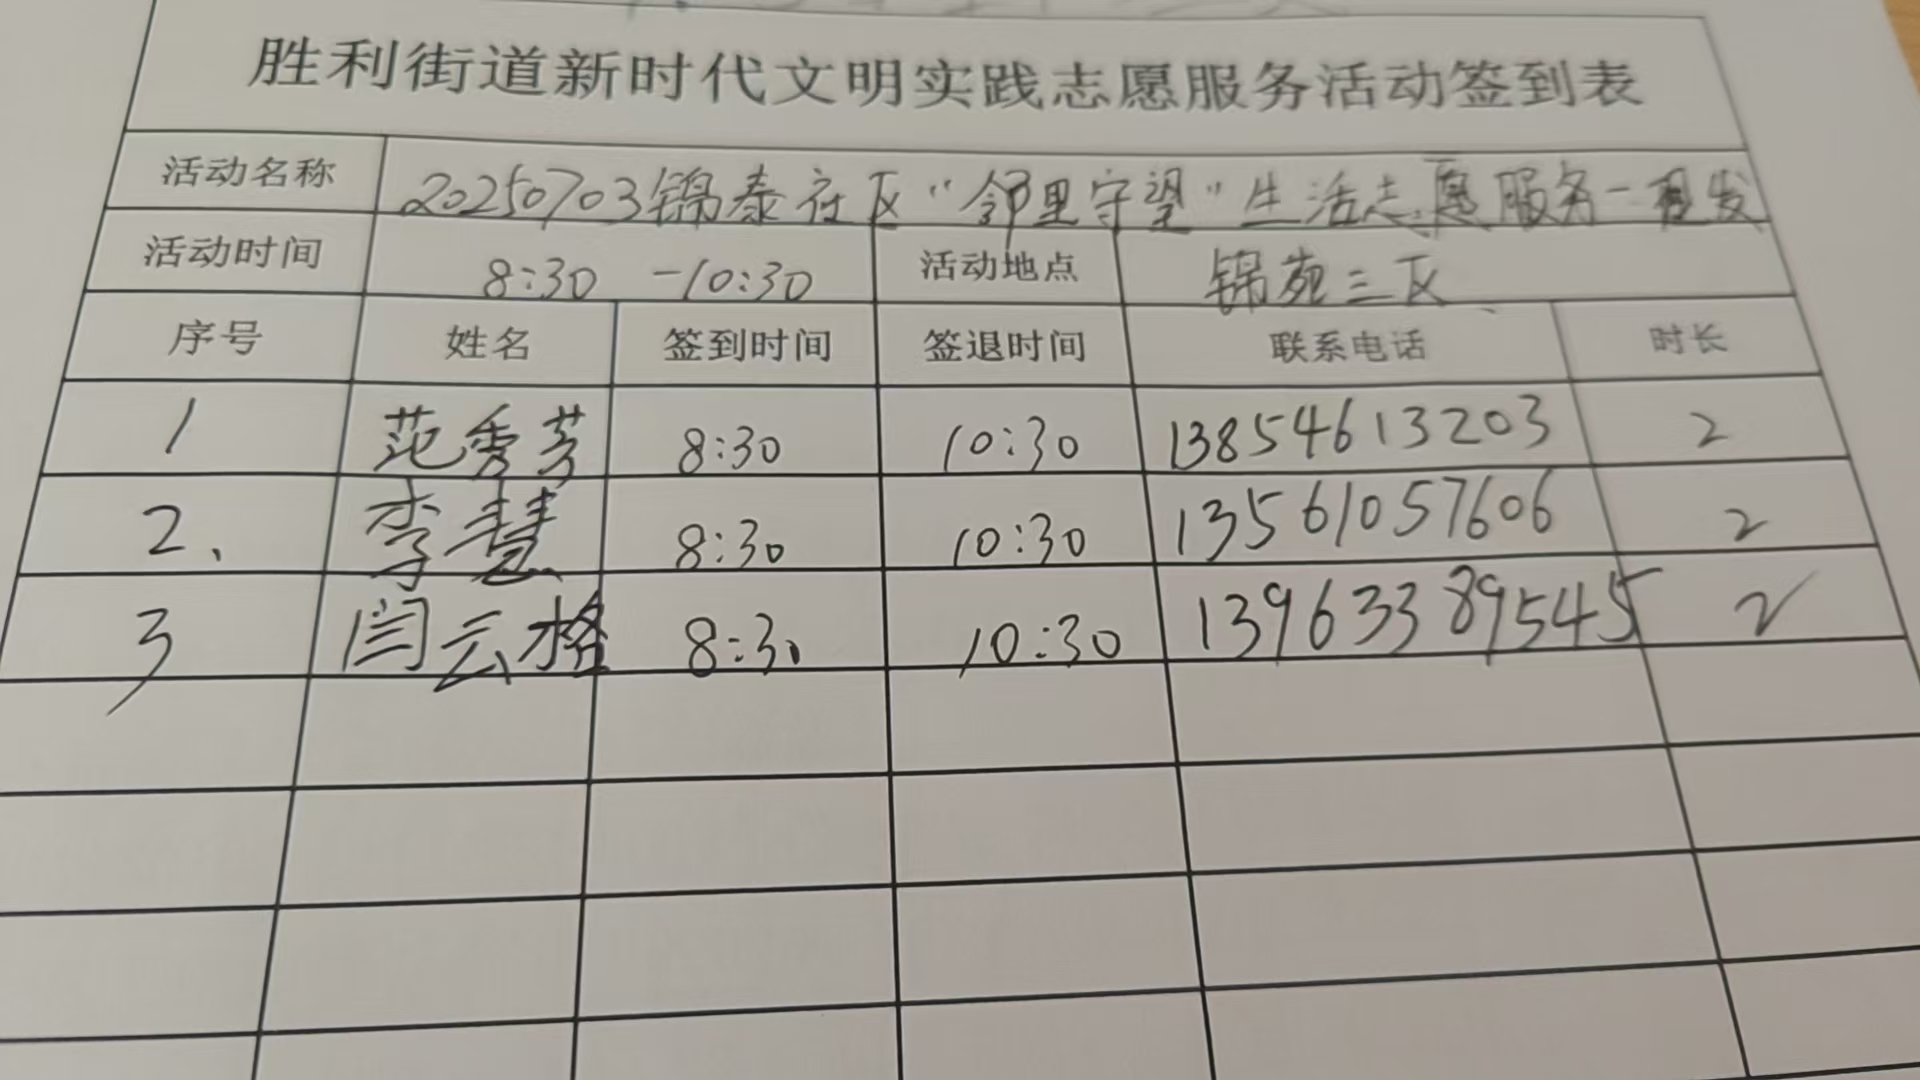 胜利街道新时代文明实践志愿服务活动签到表
活动名称 20250703锦泰社区“邻里守望”生活志愿服务-理发
活动时间 8:30 -10:30 活动地点 锦苑三区
序号 姓名 签到时间 签退时间 联系电话 时长
1 范秀芳 8:30 10:30 13854613203 2
2、 李慧 8:30 10:30 13561057606 2
3 闫云格 8:30 10:30 13963389545 2